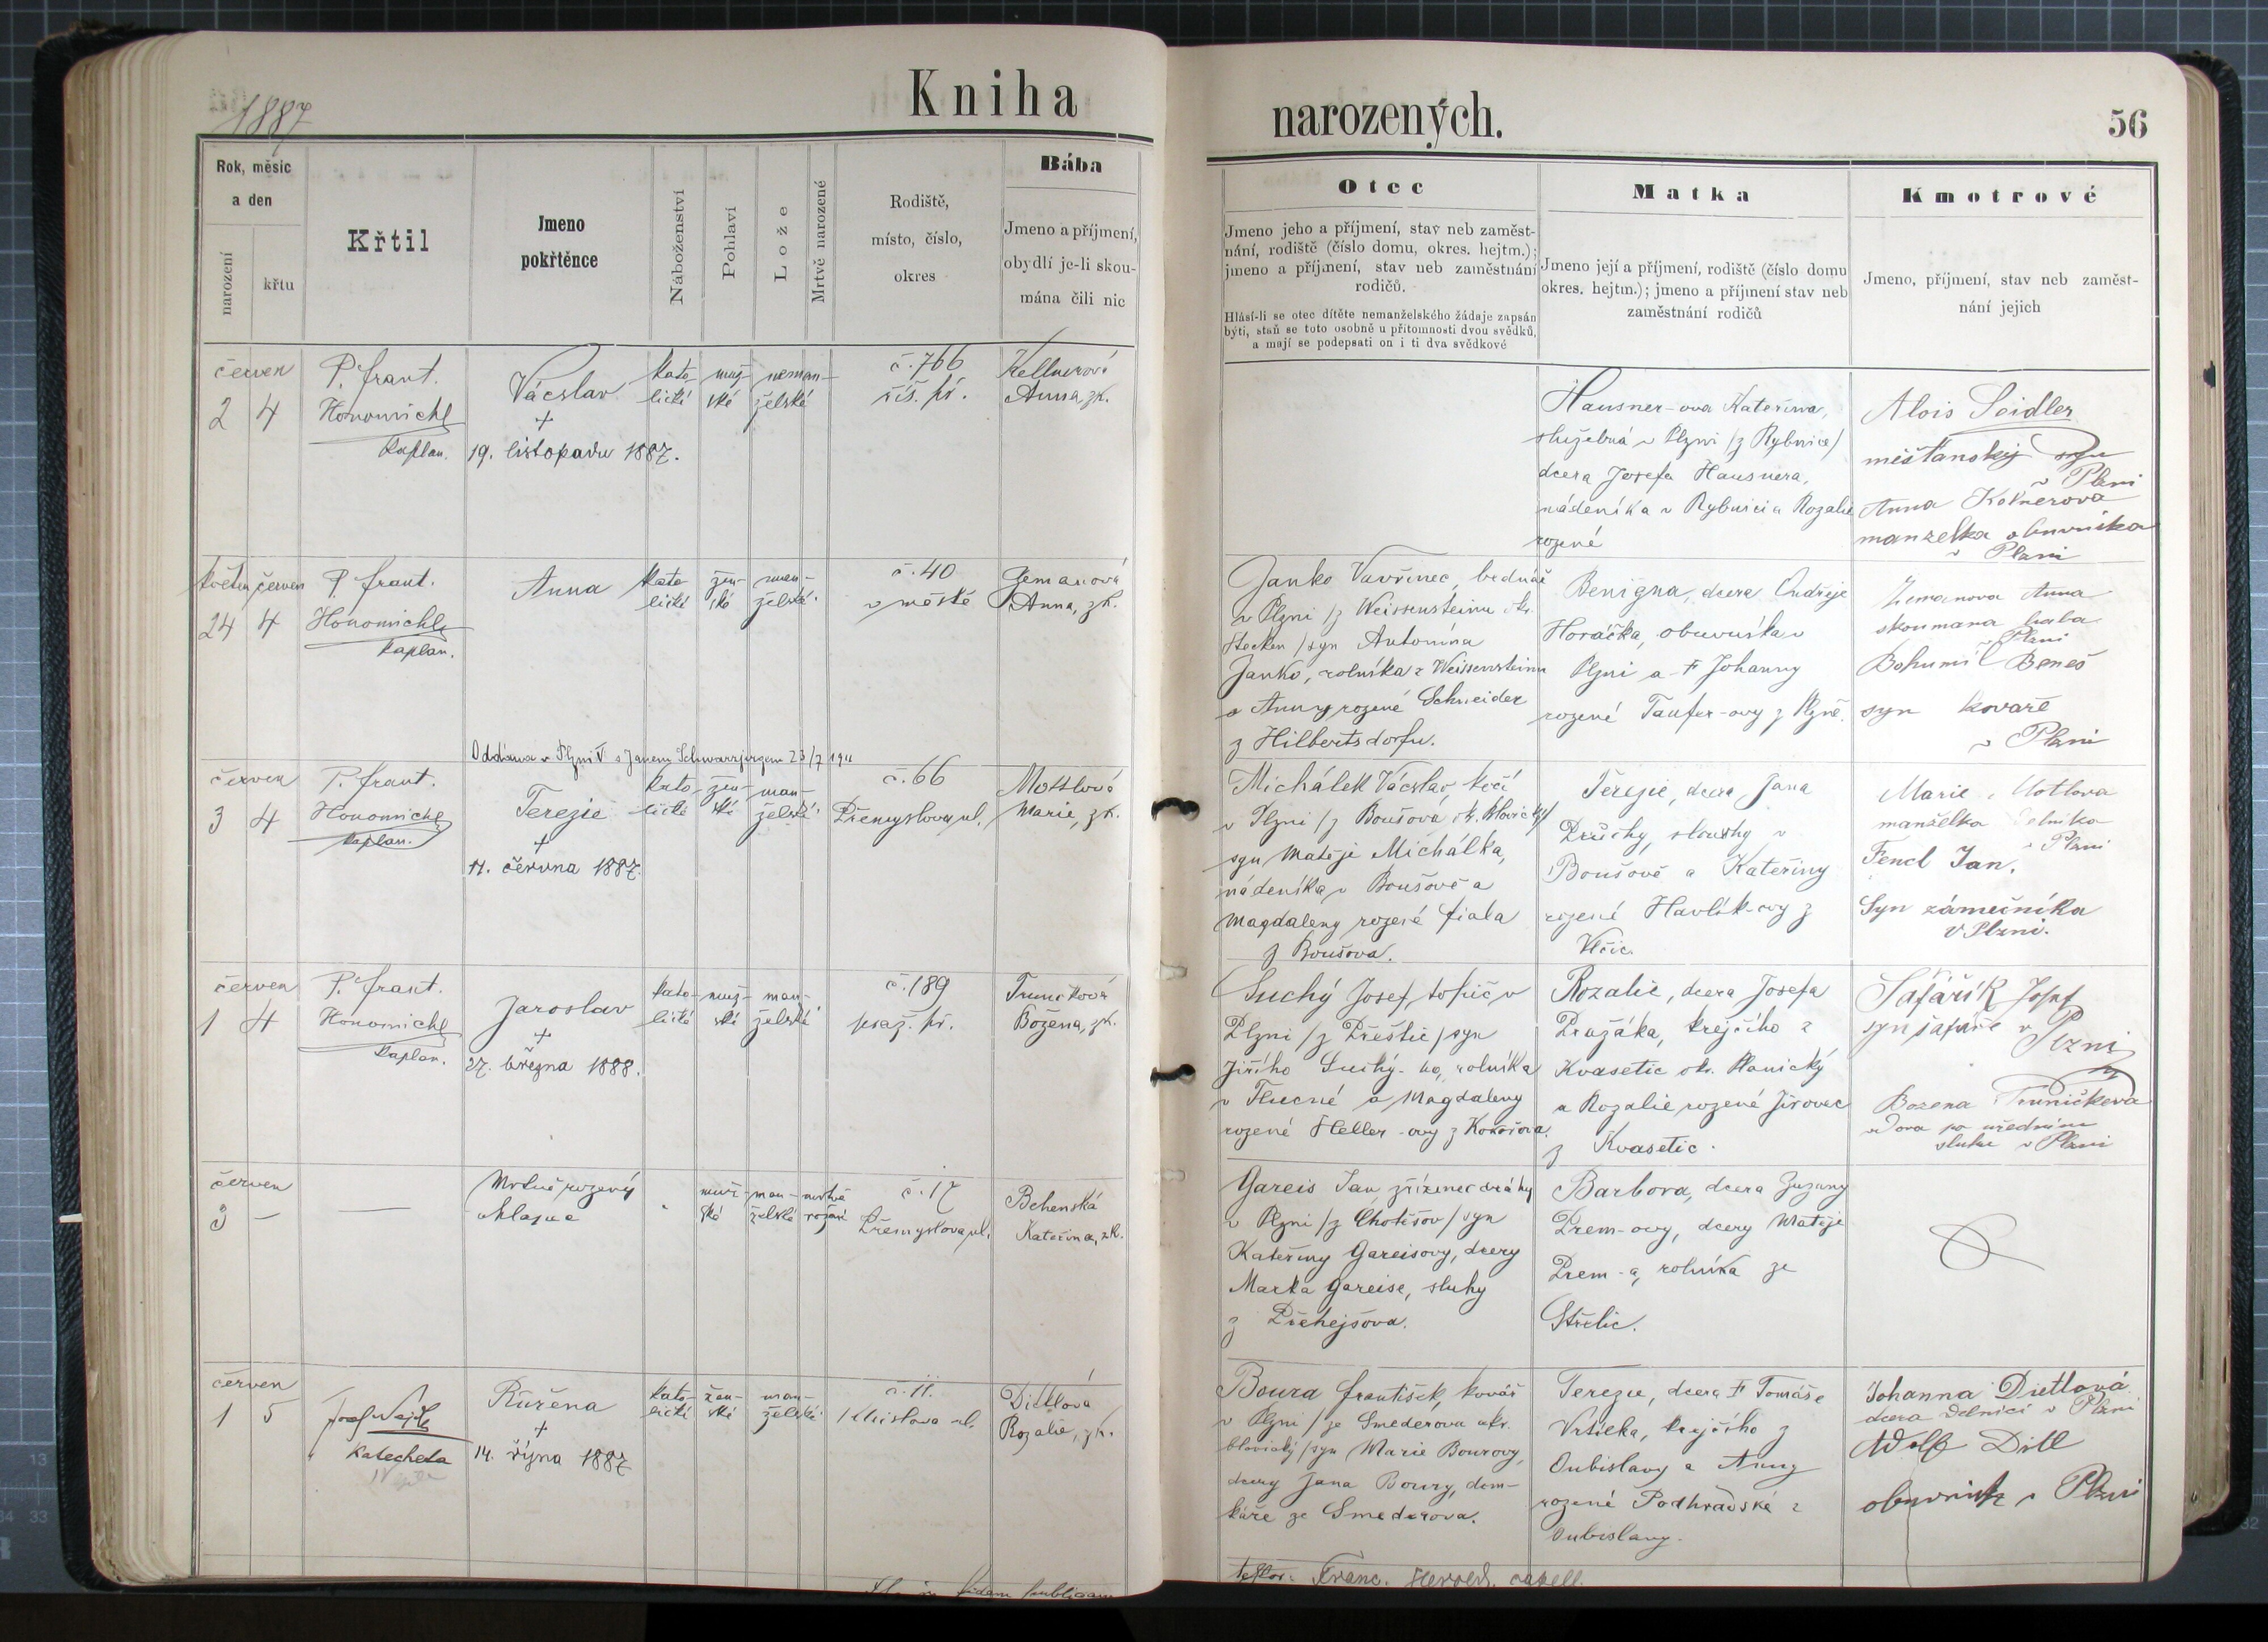 1887
Kniha
Rok, měsíc
a den
narození
křtu
Křtil
Jmeno
pokřtěnce
Náboženství
Pohlaví
Lože
Mrtvě narozené
Rodiště,
místo, číslo,
okres
Bába
Jmeno a příjmení,
obydlí je-li skou-
mána čili nic
červen
2 4
P. Frant.
Honomichl
kaplan.
Václav
+
19. listopadu 1887.
kato-
lické
muž-
ské
neman-
želské
č. 766
říš. př.
Kellnerová
Anna, zk.
květen červen
24 4
P. Frant.
Honomichl
kaplan.
Anna
kato
lické
žen-
ské
man-
želské.
č. 40
v městě
Zemanová
Anna, zk.
Oddána v Plzni V. s Janem Schwarzjirgem 23/7 1911
červen
3 4
P. Frant.
Honomichl
kaplan.
Terezie
+
11. června 1887.
kato-
lické
žen-
ské
man-
želské.
č. 66
Přemyslova ul.
Mottlová
Marie, zk.
červen
1 4
P. Frant.
Honomichl
kaplan.
Jaroslav
+
27. března 1888.
kato-
lické
muž-
ské
man-
želské
č. 189
praž. př.
Truncková
Božena, zk.
červen
3 –
—
Mrtvě rozený
chlapec
muž-
ské
man-
želské
mrtvě
rozené
č. 17
Přemyslova ul.
Behenská
Kateřina, zk.
červen
1 5
Josef
katecheta
Růžena
+
14. října 1887
kato-
lické
žen-
ské
man-
želské
č. 11.
ul.
Dittlová
Rozalie, zk.
fidem publicam
narozených.
56
Otec
Jmeno jeho a příjmení, stav neb zaměst-
nání, rodiště (číslo domu, okres. hejtm.);
jmeno a příjmení, stav neb zaměstnání
rodičů.
Hlásí-li se otec dítěte nemanželského žádaje zapsán
býti, staň se toto osobně u přítomnosti dvou svědků,
a mají se podepsati on i ti dva svědkové
Matka
Jmeno její a příjmení, rodiště (číslo domu
okres. hejtm.); jmeno a příjmení stav neb
zaměstnání rodičů
Kmotrové
Jmeno, příjmení, stav neb zaměst-
nání jejich
Hausner-ova Kateřina,
služebná v Plzni /z Rybnice/
dcera Josefa Hausnera,
nádeníka v Rybnici a Rozalie
rozené
Alois Seidler
měšťanský syn
v Plzni
Anna
manželka obuvníka
v Plzni
Janko Vavřinec, bednář
v Plzni /z Weissensteinu okr.
Stecken / syn Antonína
Janko, rolníka z Weissensteinu
a Anny rozené Schneider
z Hilbertsdorfu.
Benigna, dcera Ondřeje
Horáčka, obuvníka v
Plzni a † Johanny
rozené Taufer-ovy z Plzně.
Zemanova Anna
skoumana baba
v Plzni
Bohumil Beneš
syn kovaře
v Plzni
Michálek Václav, kočí
v Plzni /z Boušova ok.
syn Matěje Michálka,
nádeníka v Boušově a
Magdaleny rozené Fiala
z Boušova.
Terezie, dcera Jana
Průchy, slouhy v
Boušově a Kateřiny
rozené Havlík-ovy z
Vlčic.
Marie Motlova
manželka
v Plzni
Fencl Jan.
Syn zámečníka
v Plzni.
Suchý Josef, topič v
Plzni /z Přeštic / syn
Jiřího Suchý-ho, rolníka
v Tlucné a Magdaleny
rozené Heller-ovy z Kokořova.
Rozalie, dcera Josefa
Pražáka, krejčího z
Kvasetic ok. Planický
a Rozalie rozené Jírovec
z Kvasetic.
Šafařík Josef
syn šafáře v
Plzni
Bozena Trunečkova
vdova po úředním
sluhu v Plzni
Gareis Jan, zřízenec dráhy
v Plzni /z Chotěšov / syn
Kateřiny Gareisovy, dcery
Marka Gareise, sluhy
z Přehejšova.
Barbora, dcera Zuzany
Prem-ovy, dcery Matěje
Prem-a, rolníka ze
Střelic.
Boura František, kovář
v Plzni / ze Smederova okr.
blovický / syn Marie Bourovy,
dcery Jana Boury, dom-
káře ze Smederova.
Terezie, dcera † Tomáše
krejčího z
Oubislavy a Anny
rozené Podhradské z
Oubislavy.
Johanna Dietlová
dcera dělnice v Plzni
Adolf Ditl
obuvník v Plzni
Franc. Herold. capell.